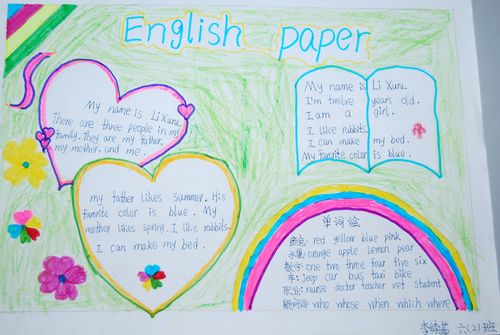 English paper
My name is Li Xuru.
There are three people in my
family. They are my father,
my mother, and me
My name is Li Xuru.
I'm twelve years old.
I am a girl.
I like rabbits.
I can make my bed.
My favorite color is blue.
my father likes summer. His
favorite color is blue. My
mother likes spring. I like rabbits.
I can make my bed.
单词绘
颜色: red yellow blue pink
水果: orange apple lemon pear
数字: one two three four five six
车: jeep car bus taxi bike
职业: nurse doctor teacher vet student
疑问词: who whose when which where
六(2)班